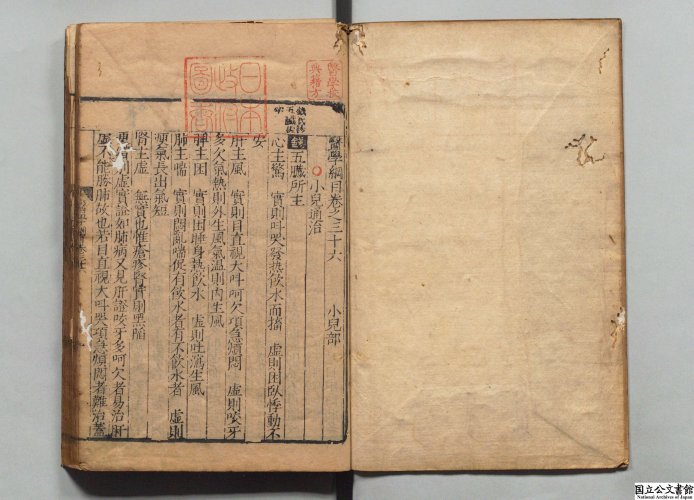 醫學綱目卷之三十六 小兒部
小兒通治
錢 五臟所主
心主驚 實則叫哭發熱飲水而搐 虛則困臥悸動不
安
肝主風 實則目直視大叫呵欠項急煩悶 虛則咬牙
多欠氣熱則外生風氣溫則內生風
脾主困 實則困睡身熱飲水 虛則吐瀉生風
肺主喘 實則悶亂喘促有飲水者有不飲水者 虛則
哽氣長出氣短
腎主虛 無實也惟瘡疹腎實則黑陷
更 別虛實證如肺病又見肝證咬牙多呵欠者易治肝
虛 能勝肺故也若目直視大叫哭項急煩悶者難治蓋
日本政府圖書
醫學校典籍方
国立公文書館
National Archives of Japan